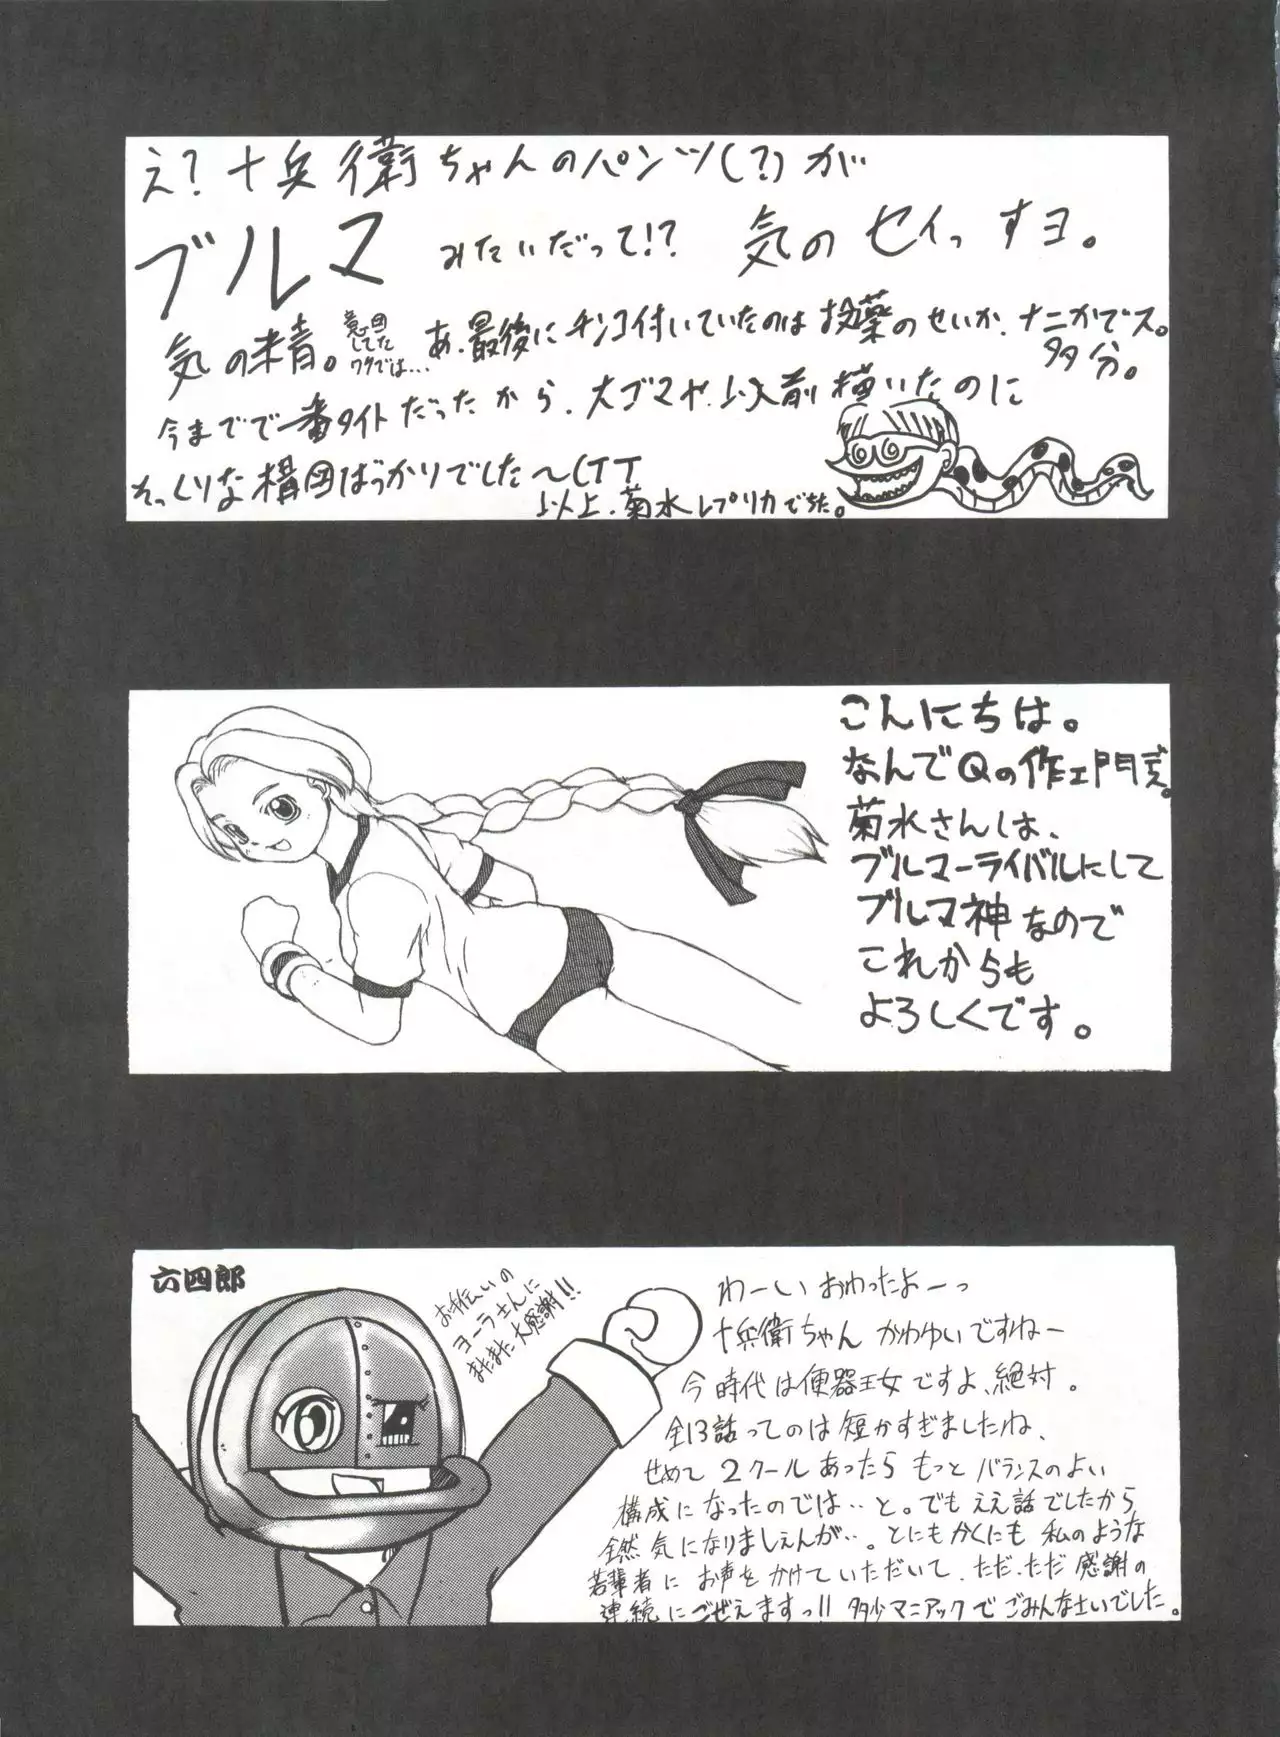 え?十兵衛ちゃんのパンツ(?)が
ブルマ みたいだって!? 気のセイっすヨ。
気の精。
意図
してた
ワケでは…
あ、最後にチンコ付いていたのは投薬のせいか、ナニかでス。
多分。
今までで一番タイトだったから、大ゴマや、以前描いたのに
そっくりな構図ばっかりでした〜(TT
以上、菊水レプリカでちた。
こんにちは。
なんでQの作エ門式。
菊水さんは、
ブルマーライバルにして
ブルマ神なので
これからも
よろしくです。
六四郎
お手伝いの
ヨーラさんに
またまた大感謝!!
わーい おわったよーっ
十兵衛ちゃん かわゆいですねー
今時代は便器王女ですよ、絶対。
全13話ってのは短かすぎましたね、
せめて2クールあったら もっと バランスのよい
構成になったのでは‥と。でもええ話でしたから
全然気になりましぇんが‥。とにもかくにも 私のような
若輩者に お声をかけていただいて、ただ、ただ 感謝の
連続にごぜえますっ!! 多少マニアックで ごみんなすいでした。